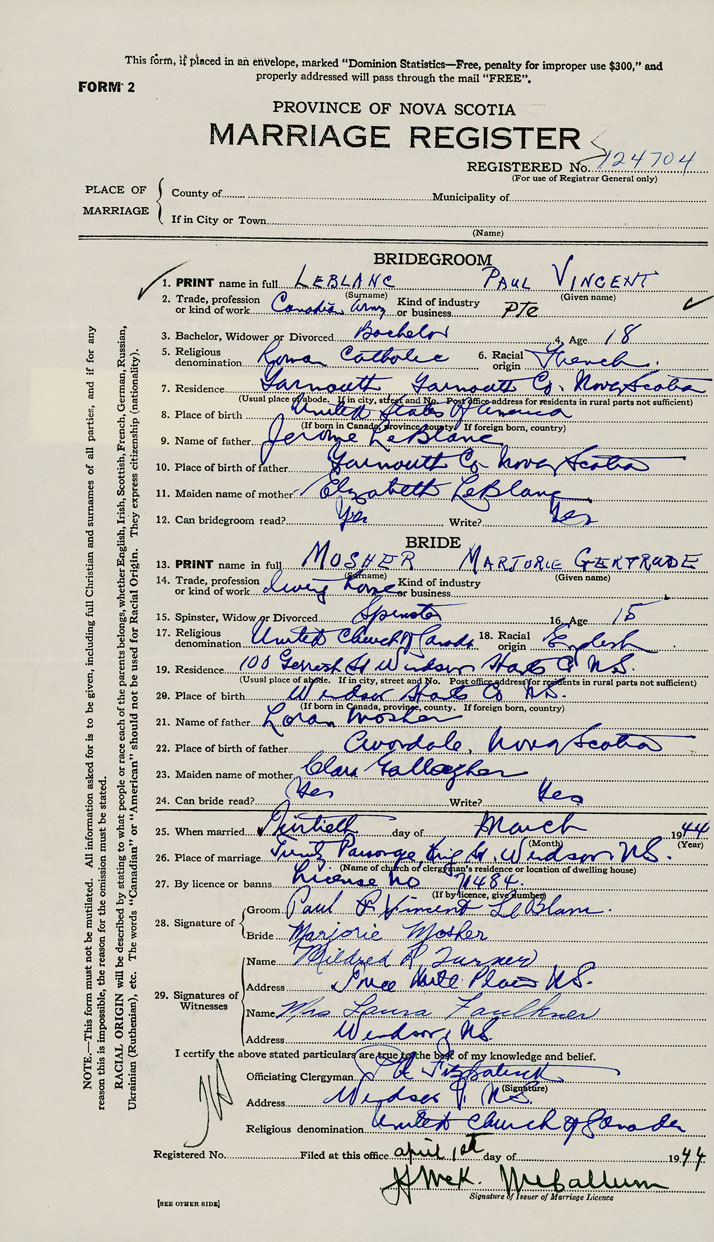 This form, if placed in an envelope, marked "Dominion Statistics—Free, penalty for improper use $300," and
properly addressed will pass through the mail "FREE".
FORM 2
PROVINCE OF NOVA SCOTIA
MARRIAGE REGISTER
REGISTERED No. 124704
(For use of Registrar General only)
PLACE OF MARRIAGE
County of Municipality of
If in City or Town
(Name)
BRIDEGROOM
1. PRINT name in full LEBLANC PAUL VINCENT
(Surname) (Given name)
2. Trade, profession or kind of work Canadian Army Kind of industry or business Pte
3. Bachelor, Widower or Divorced Bachelor 4. Age 18
5. Religious denomination Roman Catholic 6. Racial origin French.
7. Residence Yarmouth Yarmouth Co. Nova Scotia
(Usual place of abode. If in city, street and No. Post office address for residents in rural parts not sufficient)
8. Place of birth United States of America
(If born in Canada, province, county. If foreign born, country)
9. Name of father Jerome LeBlanc
10. Place of birth of father Yarmouth Co. Nova Scotia
11. Maiden name of mother Elizabeth LeBlanc
12. Can bridegroom read? Yes Write? Yes
BRIDE
13. PRINT name in full MOSHER MARJORIE GERTRUDE
(Surname) (Given name)
14. Trade, profession or kind of work home Kind of industry or business
15. Spinster, Widow or Divorced Spinster 16. Age 15
17. Religious denomination United Church of Canada 18. Racial origin English
19. Residence 100 Gerrish St Windsor Hants Co N.S.
(Usual place of abode. If in city, street and No. Post office address for residents in rural parts not sufficient)
20. Place of birth Windsor Hants Co N.S.
(If born in Canada, province, county. If foreign born, country)
21. Name of father Loran Mosher
22. Place of birth of father Avondale, Nova Scotia
23. Maiden name of mother Clara Gallagher
24. Can bride read? Yes Write? Yes
25. When married day of March 1944
(Month) (Year)
26. Place of marriage King St. Windsor N.S.
(Name of church or clergyman's residence or location of dwelling house)
27. By licence or banns License No 71484.
(If by licence, give number)
28. Signature of
Groom Paul P. Vincent LeBlanc.
Bride Marjorie Mosher
29. Signatures of Witnesses
Name Mildred R Turner
Address Plains N.S.
Name Mrs Laura Faulkner
Address Windsor, N.S
I certify the above stated particulars are true to the best of my knowledge and belief.
Officiating Clergyman Fitzpatrick
(Signature)
Address Windsor N.S.
Religious denomination United Church of Canada
Registered No. Filed at this office April 1st day of 1944
McCallum
Signature of Issuer of Marriage Licence
[SEE OTHER SIDE]
NOTE.—This form must not be mutilated. All information asked for is to be given, including full Christian and surnames of all parties, and if for any
reason this is impossible, the reason for the omission must be stated.
RACIAL ORIGIN will be described by stating to what people or race each of the parents belongs, whether English, Irish, Scottish, French, German, Russian,
Ukrainian (Ruthenian), etc. The words "Canadian" or "American" should not be used for Racial Origin. They express citizenship (nationality).